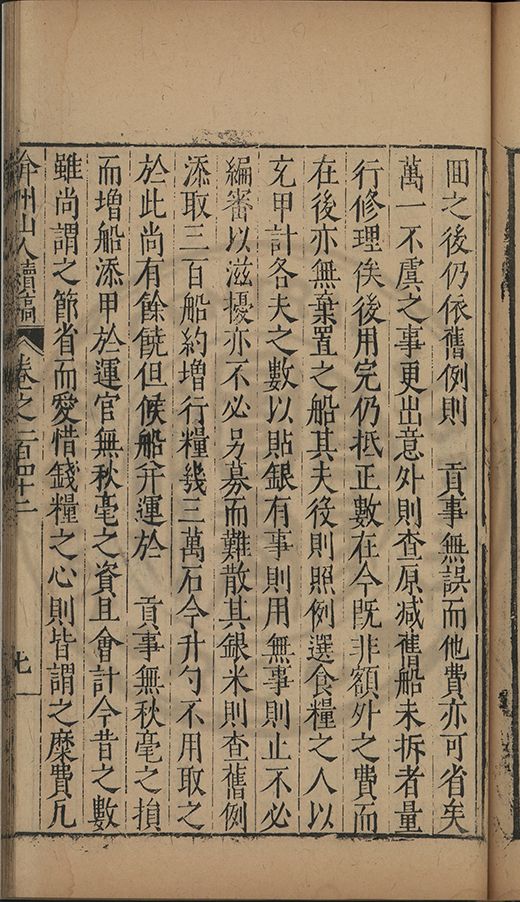 囬之後仍依舊例則　貢事無誤而他費亦可省矣
萬一不虞之事更出意外則查原減舊船未拆者量
行修理俟後用完仍抵正數在今旣非額外之費而
在後亦無棄置之船其夫役則照例選食糧之人以
充甲計各夫之數以貼銀有事則用無事則止不必
編審以滋擾亦不必另募而難散其銀米則查舊例
添取三百船約増行糧幾三萬石今升勺不用取之
於此尚有餘饒但候船弁運於　貢事無秋毫之損
而増船添甲於運官無秋毫之資且會計今昔之數
雖尚謂之節省而愛惜錢糧之心則皆謂之糜費凡
弇州山人續稿　卷之一百四十二　九